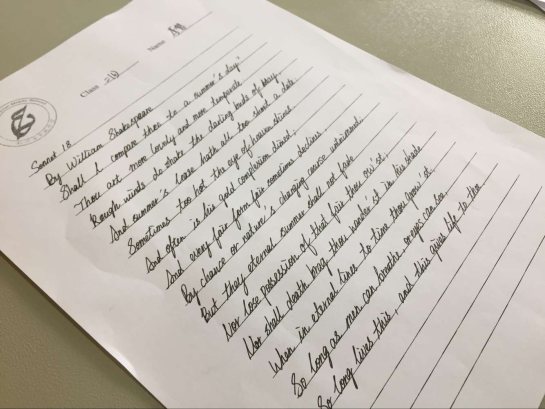 Class Name
Sonnet 18
By William Shakespeare
Shall I compare thee to a summer's day?
Thou art more lovely and more temperate
Rough winds do shake the darling buds of May,
And summer's lease hath all too short a date.
Sometimes too hot the eye of heaven shines
And often is his gold complexion dim'd,
And every fair from fair sometimes declines,
By chance or nature's changing course untrimm'd.
But thy eternal summer shall not fade
Nor lose possession of that fair thou ow'st,
Nor shall death brag thou wander'st in his shade
When in eternal lines to time thou grow'st.
So long as men can breathe or eyes can see
So long lives this, and this gives life to thee